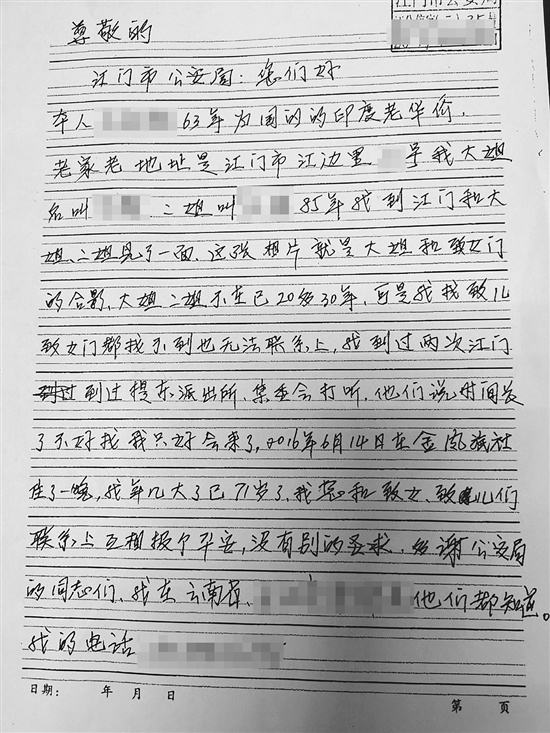 江门市公安局
尊敬的
江门市公安局:您们好
本人63年为国的的印度老华侨.
老家老地址是江门市江边里号我大姐
名叫 二姐叫 85年我到江门和大
姐、二姐见了一面.这张相片就是大姐和致女门
的合影.大姐二姐不在已20多30年,可是我找致儿
致女门都找不到也无法联系上,我到过两次江门
到过提东派出所、集委会打听.他们说时间长
了不好找我只好会来了,2016年6月14日在金凤旅社
住了一晚,我年几大了已71岁了.我 和致女、致儿们
联系上互相报个平安,没有别的要求. 谢公安局
的同志们.我在云南省、他们都知道。
我的电话
日期: 年 月 日 第 页